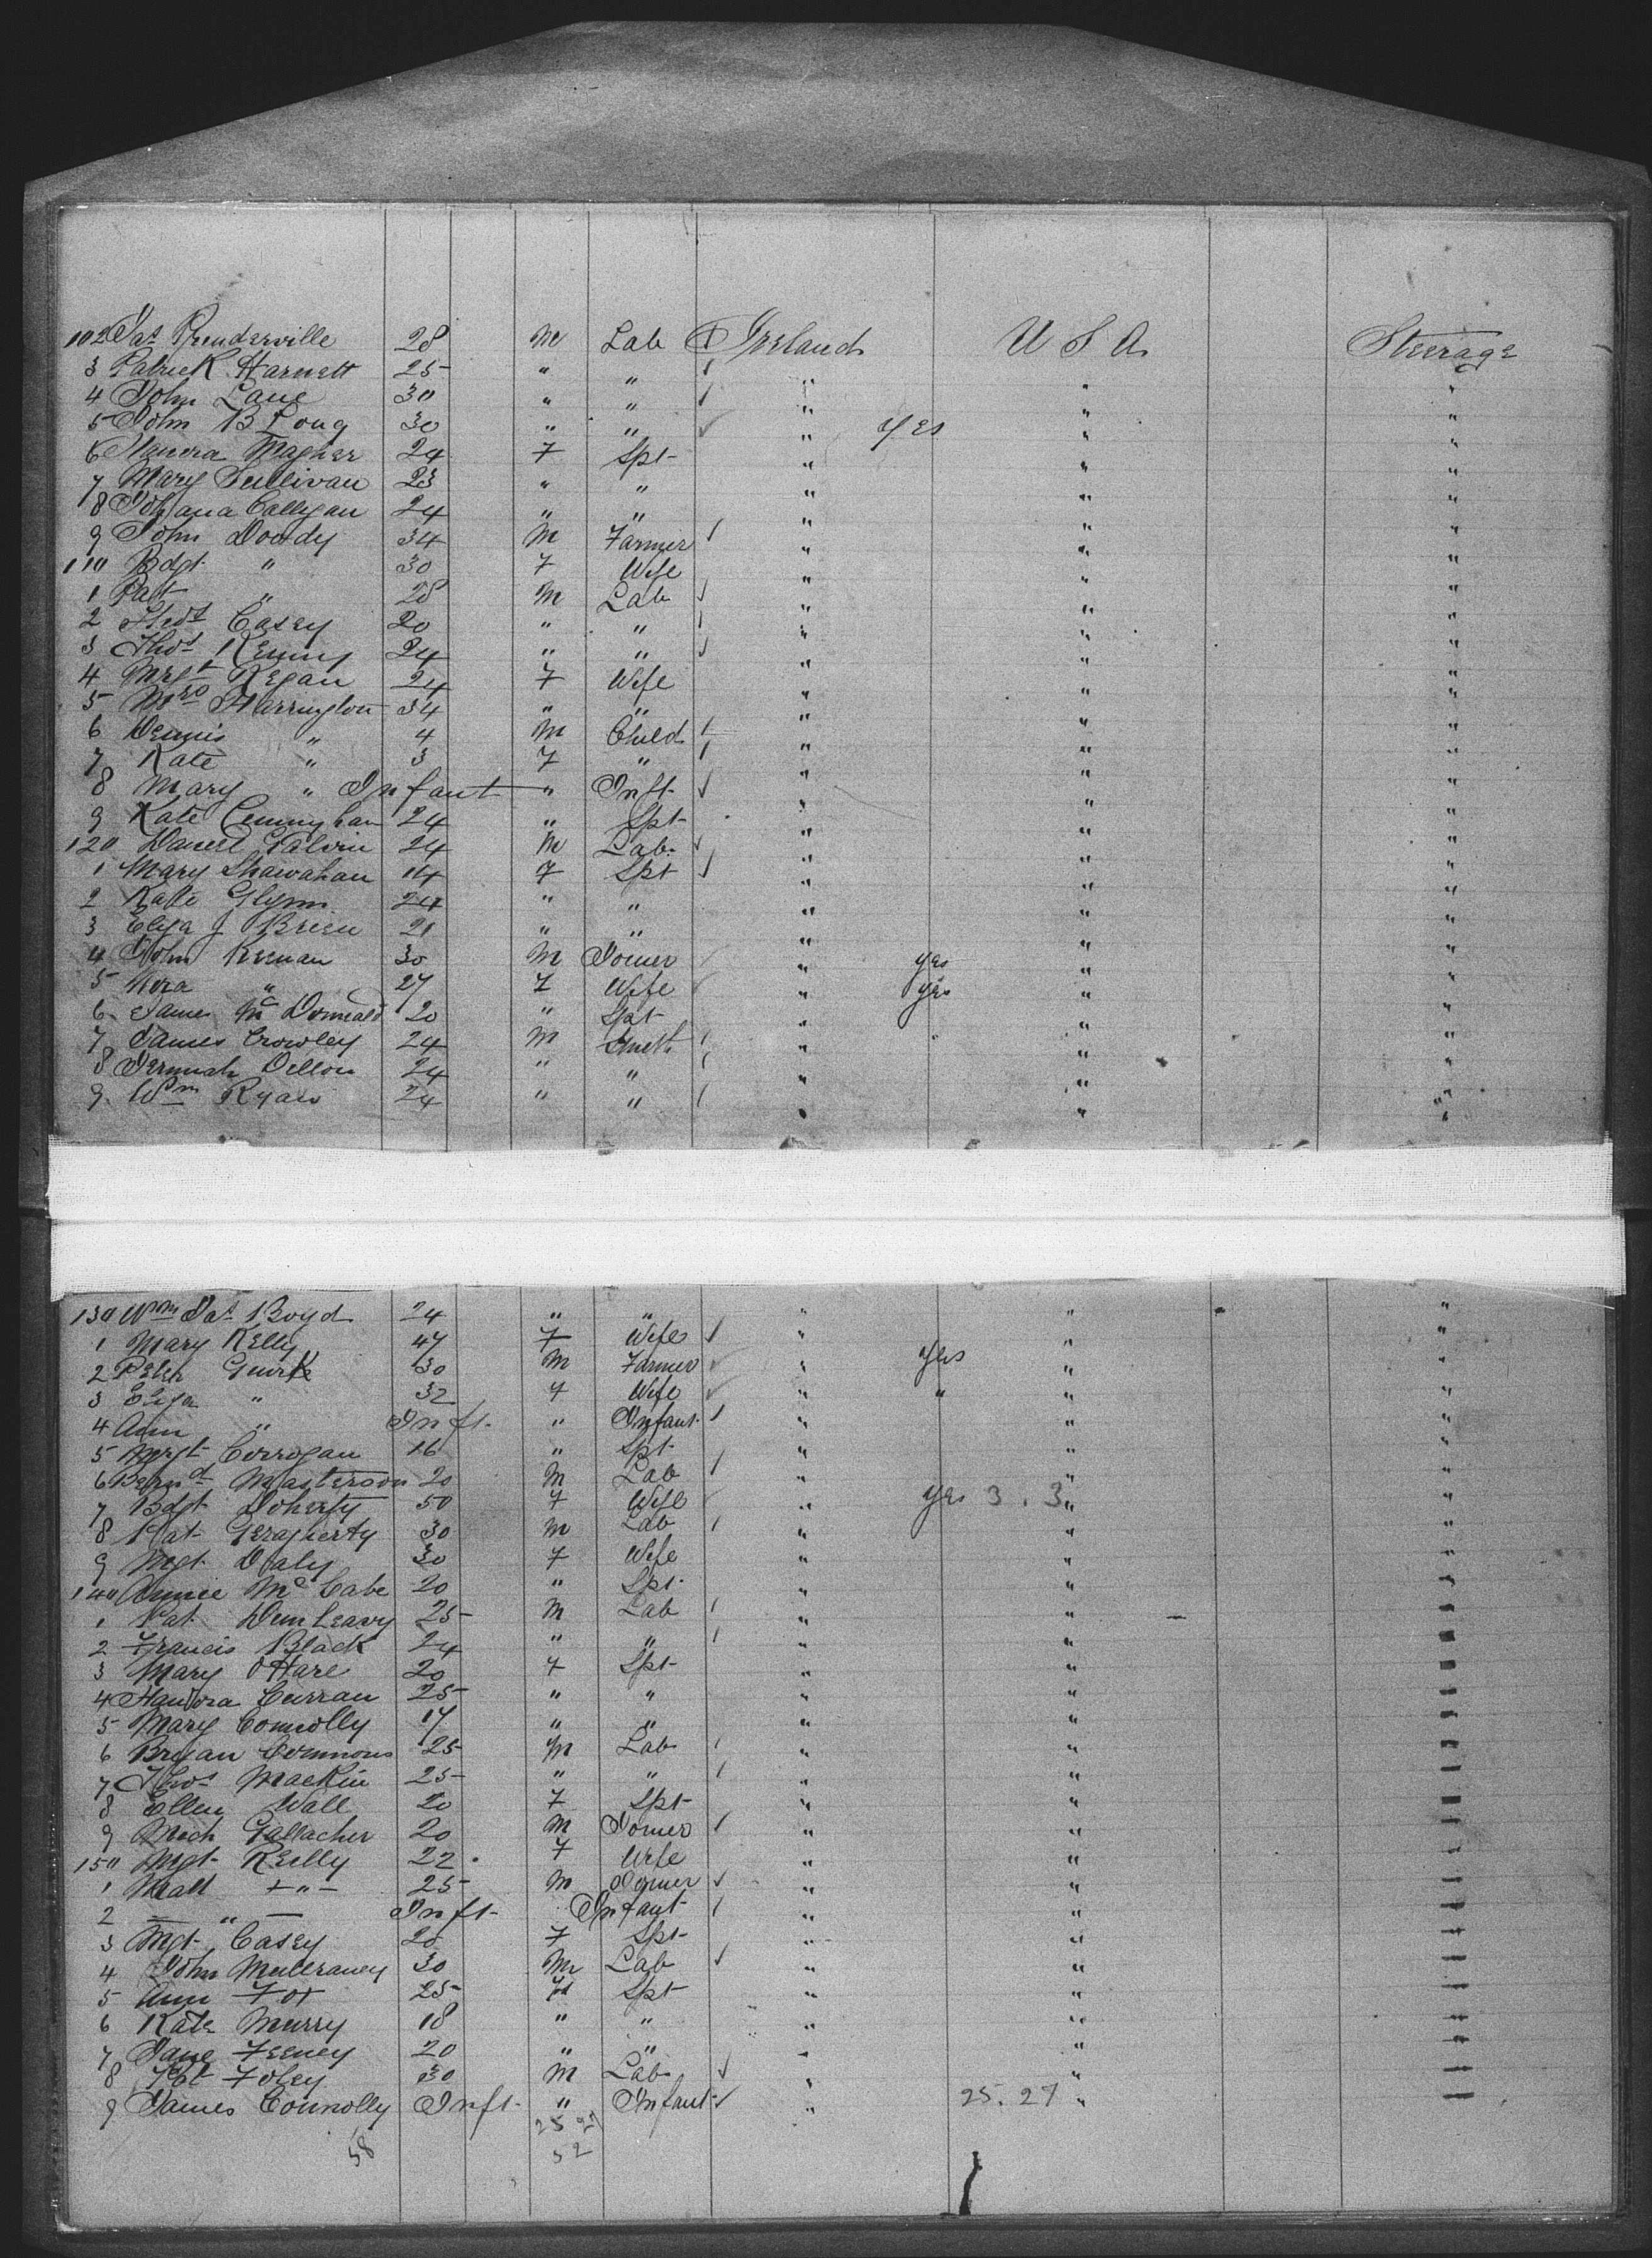 102 Jas Prenderville 28 M Lab Ireland U S A Steerage
3 Patrick Harnett 25 " " " " "
4 John Lane 30 " " " " "
5 John B Long 30 " " " yes " "
6 Hanora Magner 24 F Spt " " "
7 Mary Sullivan 23 " " " " "
8 Johana Calligan 24 " " " " "
9 John Doody 34 M Farmer " " "
110 Bdgt " 30 F Wife " " "
1 Patt " 28 M Lab " " "
2 Casey 20 " " " " "
3 Thos Kenny 24 " " " " "
4 Mrgt Regan 24 F Wife " " "
5 Mrs Harrington 34 " " " " "
6 Dennis " 4 M Child " " "
7 Kate " 3 F " " " "
8 Mary " Infant " Inft " " "
9 Kate Cunningham 24 " Spt " " "
120 Daniel Galvin 24 M Lab. " " "
1 Mary Shawahan 14 F Spt " " "
2 Kate Glynn 24 " " " " "
3 Eliza J Brien 21 " " " " "
4 John Keenan 30 M Joiner " yes " "
5 Nora " 27 F Wife " yes " "
6 James Mc Donnald 20 " Spt " " "
7 James Crowley 24 M Smith " " "
8 Jermiah Dillon 24 " " " " "
9. Wm Ryan 24 " " " " "
130 Wm Jas Boyd 24 " " " " "
1 Mary Kelly 47 F Wife " " "
2 Peter Quirk 30 M Farmer " yes " "
3 Eliza " 32 F Wife " " " "
4 Ann " Inft. " Infant " " "
5 Mrgt Corrogan 16 " Spt " " "
6 Bernd Masterson 20 M Lab " " "
7 Bdgt Doherty 50 F Wife " yes 3 . 3 " "
8 Pat Geragherty 30 M Lab " " "
9 Mgt Daly 30 F Wife " " "
140 Annie Mc Cabe 20 " Spt. " " "
1 Pat Dunleavy 25 M Lab " "
2 Francis Black 24 " " " "
3 Mary O Hare 20 F Spt " "
4 Hanora Curran 25 " " " "
5 Mary Connolly 17 " " " "
6 Bryan Commons 25 M Lab " "
7 Thos Mackin 25 " " " "
8 Ellen Wall 20 F Spt " "
9 Mich Gallacher 20 M Joiner " "
150 Mgt Reilly 22 F Wife " "
1 Matt " 25 M Joiner " "
2 " Inft Infant " "
3 Mgt Casey 20 F Spt " "
4 John Mullraney 30 M Lab " "
5 Ann Fox 25 F Spt " "
6 Kate Murry 18 " " " "
7 Jane Feeney 20 " " " "
8 Pat Foley 30 M Lab " "
9 James Connolly Inft " Infant " 25. 27 "
25 27
58 52